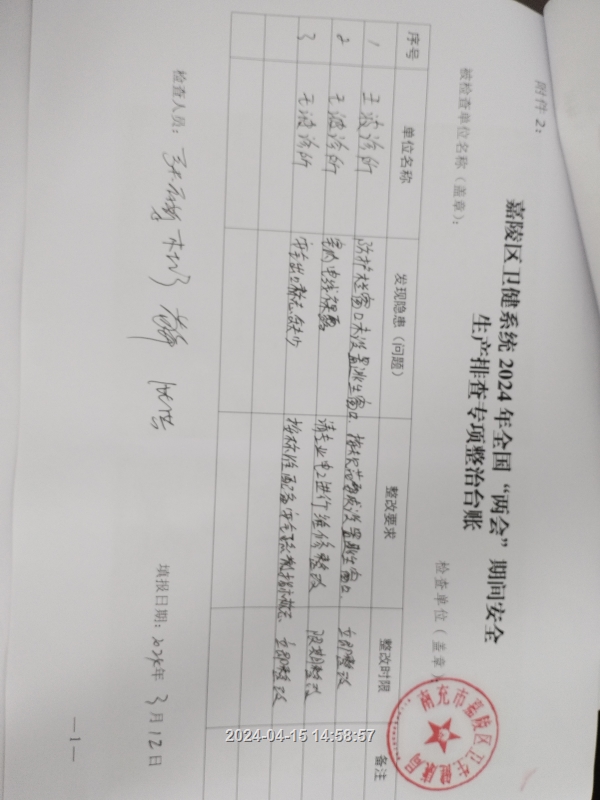 附件 2：
嘉陵区卫健系统 2024 年全国“两会”期间安全
生产排查专项整治台账
被检查单位名称（盖章）： 检查单位（盖章）
序号 单位名称 发现隐患（问题） 整改要求 整改时限 备注
1 诊所 防护栏窗口未设置逃生窗口 设置逃生窗口 立即整改
2 诊所 室内电线裸露 请专业电工进行维修整改 限期整改
3 诊所 安全出口标志缺少 按标准配备安全 指示标志 立即整改
检查人员： 填报日期：2024年 3月 12日
— 1 —
南充市嘉陵区卫生健康局
2024-04-15 14:58:57